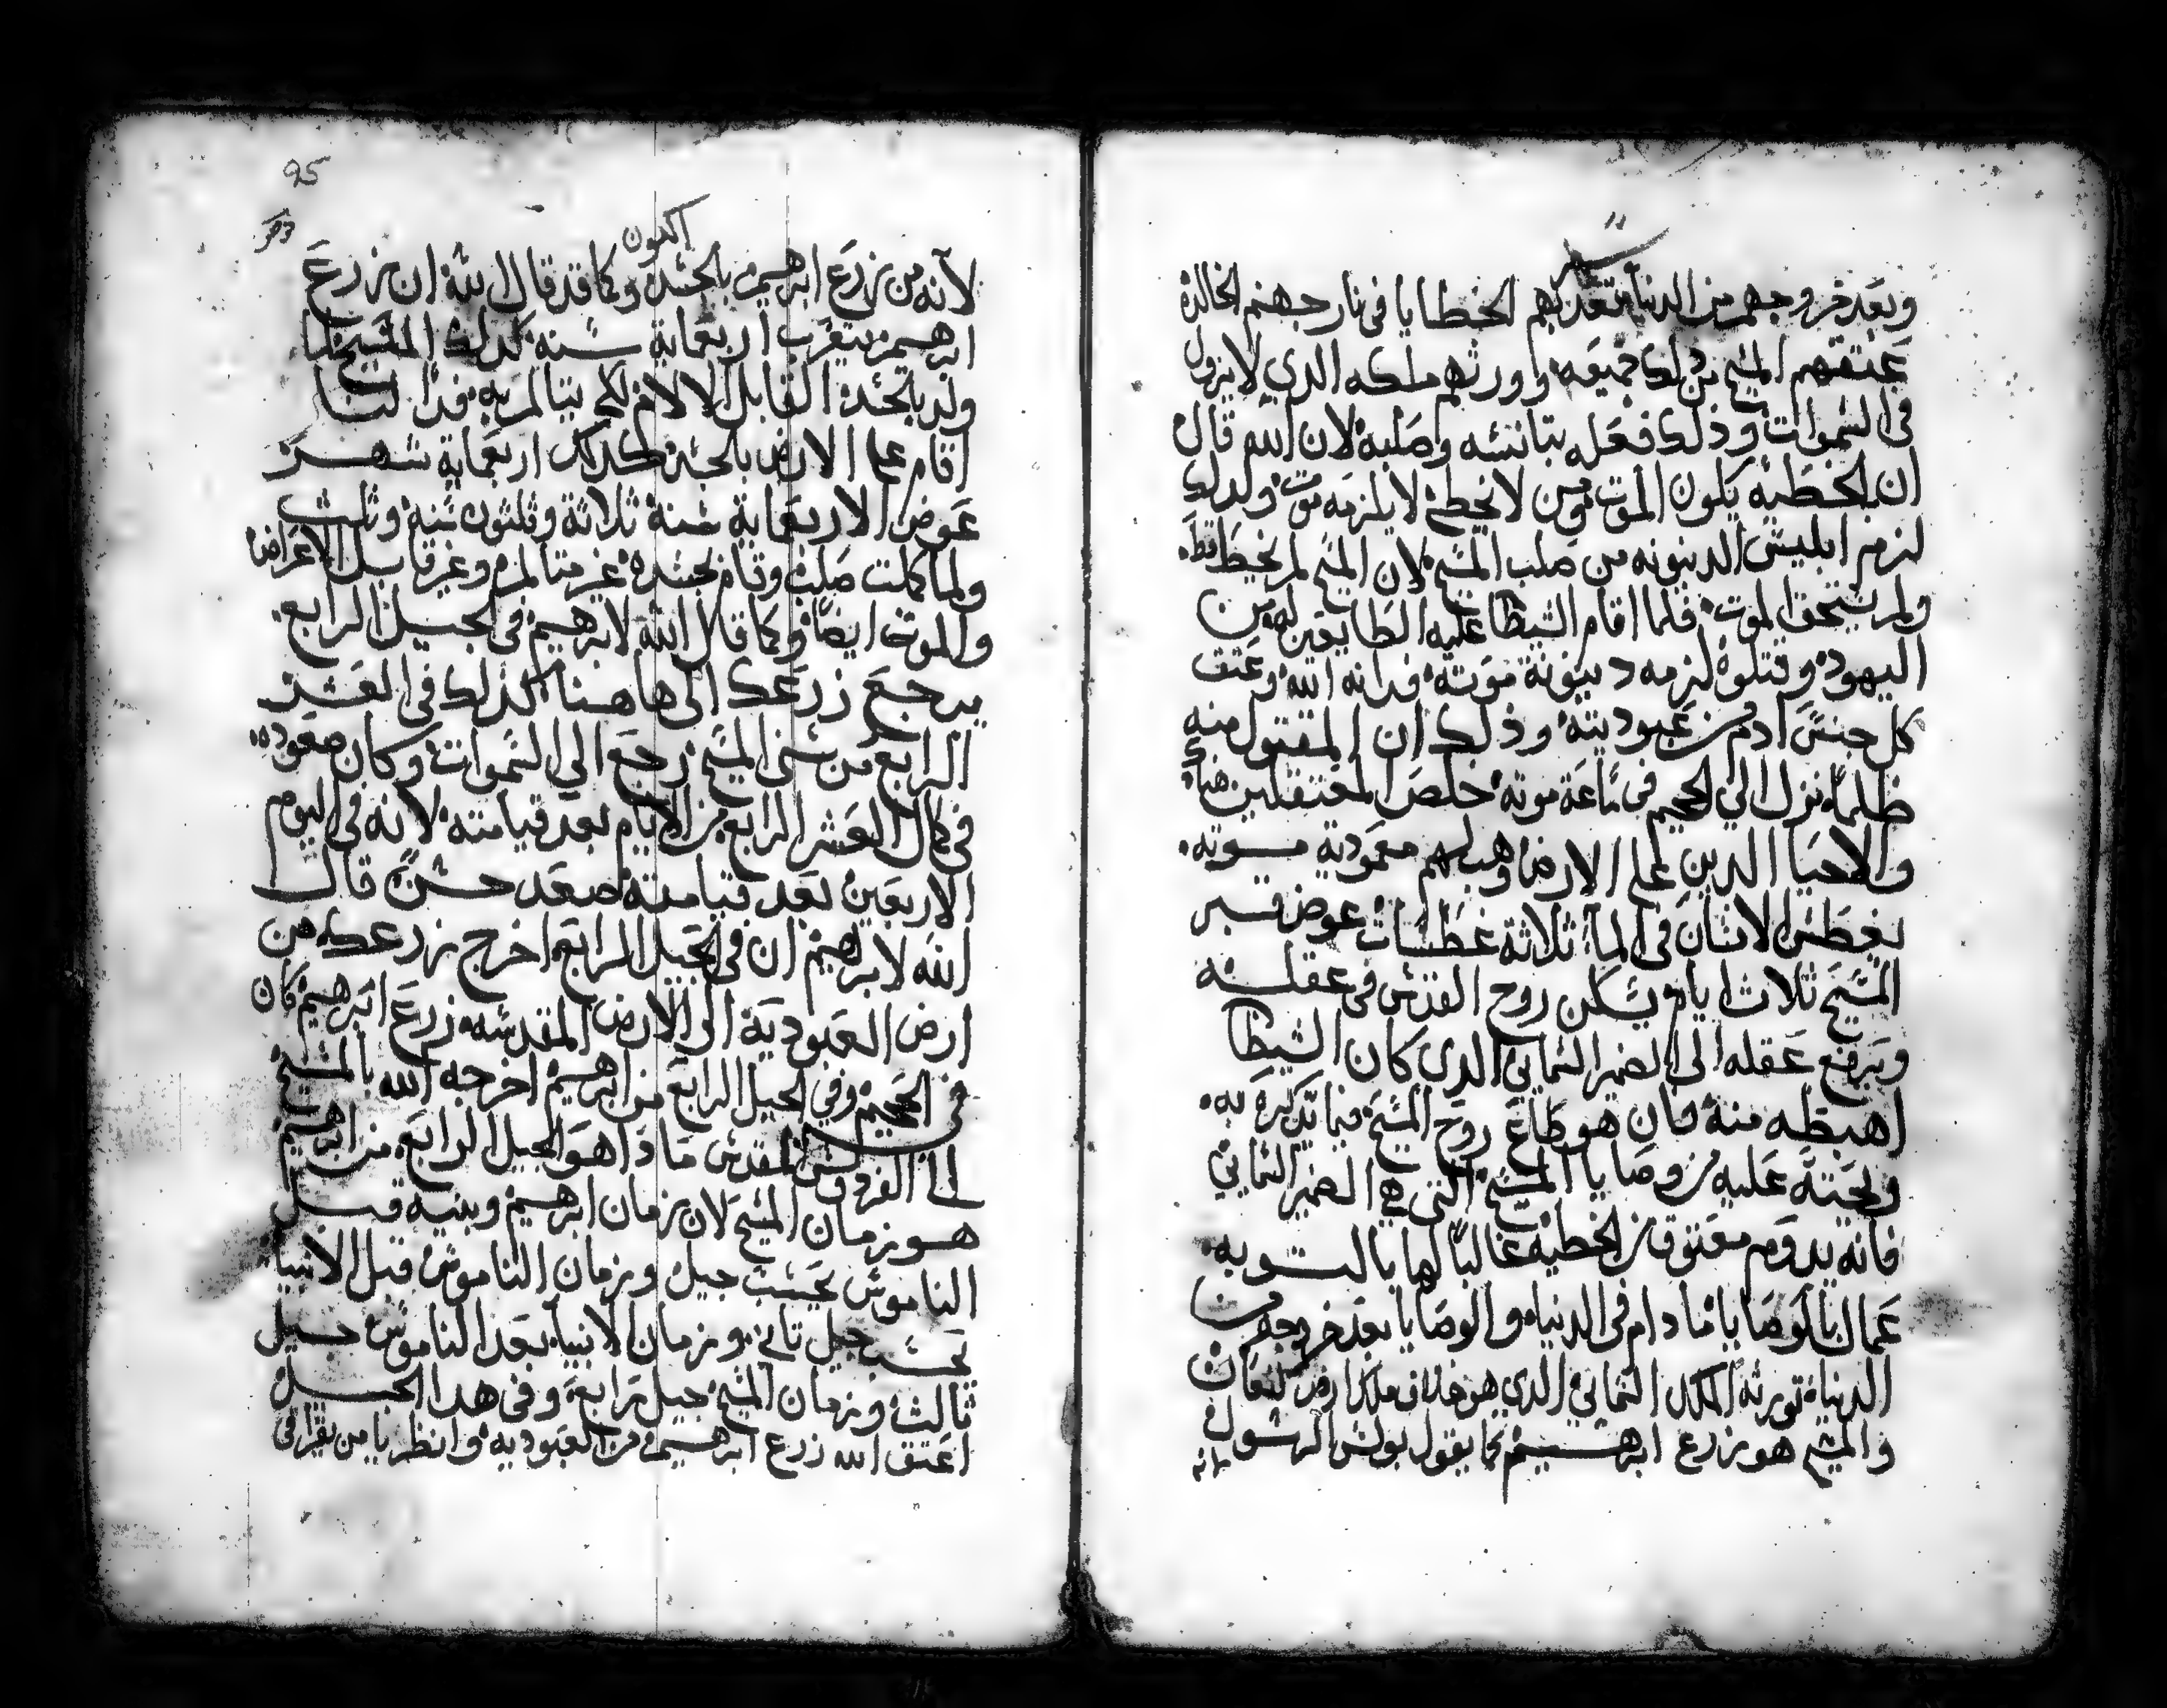 سفر
وبعد خروجهم من الدنيا تعذبهم الخطايا فى نار جهنم الخالدة
عتقهم المسيح من ذلك جميعه واورثهم ملكه الدي لا يزول
فى السموات وذلك فعله بتانسه وصلبه لان الله قال
ان بالخطية يكون الموت ومن لا يخطى لا يلزمه موت ولدلك
لزم ابليس الدينونه من صلب المسيح لان المسيح لم يخطا قط
ولم يستحق الموت فلما اقام الشيطا عليه الطايعين له من
اليهود وقتلوه لزمه دينونة موته فدانه الله وعتق
كل جنس ادم من عبوديته وذلك ان المقتول منه
ظلما نزل الي الجحيم فى ساعة موته خلص المعتقلين هناك
والاحيا الدين على الارض وهب لهم معمودية موته
يغطس الانسان فى الما ثلاثة غطسات عوض قبر
المسيح ثلاث ايام يسكن روح القدس فى عقله
ويرفع عقله الى الضمير السمايي الدى كان الشيطا
اهبطه منه فان هو طاع روح المسيح فيما يدكره به
ويحته عليه من وصايا المسيح التى هي الضمير السمايي
فانه يدوم معتوق من الخطيه غالبا لها بالتوبه
عمال بالوصايا ما دام فى الدنيا والوصايا بعد خروجه من
الدنيا تورثه الملك السمايي الدي هو خلاف ملك ارض كنعان
والمسيح هو زرع ابرهيم كما يقول بولس الرسول
لانه
95
التكوين
لانه من زرع ابرهيم بالجسد وكما قد قال الله ان زرع
ابرهيم يتغرب اربعماية سنه كدلك المسيح لما
ولد بالجسد القابل الالام لكي يتالم به فدا لنا
اقام على الارض بالجسد كدلك اربعماية شهر
عوض الاربعماية سنة ثلاثة وثلثون سنه وثلث
ولما كملت صلب وقام بجسده غير متالم وغير قابل الاعراض
والموت ايضا وكما قال الله لابرهيم فى الجيل الرابع
يرجع زرعك الى هاهنا كدلك فى العشر
الرابع من سنى المسيح رجع الي السموات وكان صعوده
فى كمال العشر الرابع من الايام بعد قيامته لانه فى اليوم
الاربعين بعد قيامته صعد حسن قال
الله لابرهيم ان فى الجيل الرابع اخرج زرعك من
ارض العبودية الى الارض المقدسه زرع ابرهيم كان
فى الجحيم وفي الجيل الرابع من ابرهيم اخرجه الله بالمسيح
الى الفردوس المقدس ما دا هو الجيل الرابع من ابرهيم
هو زمان المسيح لان زمان ابرهيم وبنيه قبل
الناموس يحسب جيل وزمان الناموس قبل الانبيا
يحسب جيل تانى وزمان الانبيا بعد الناموس جيل
ثالث وزمان المسيح جيل رابع وفى هدا الجيل
اعتق الله زرع ابرهيم من العبوديه وانظر يا من يقرا فى